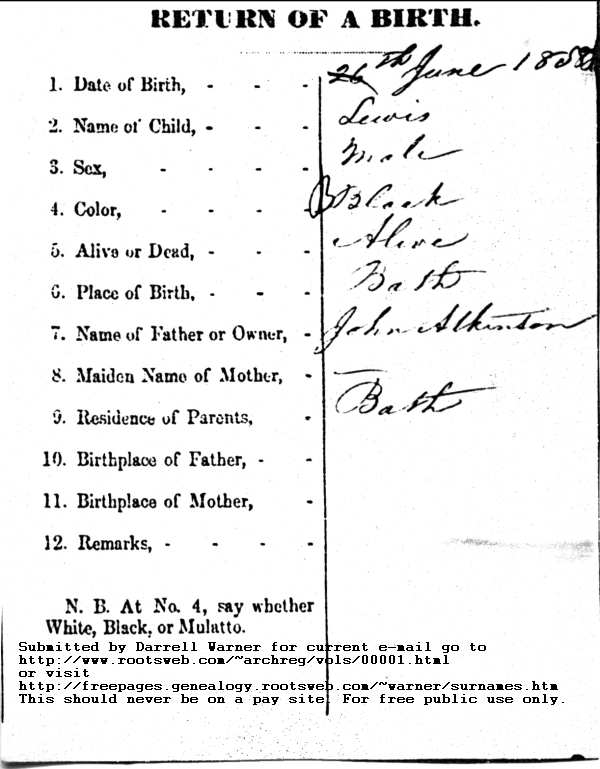 RETURN OF A BIRTH.
1. Date of Birth, - - - 26th June 185
2. Name of Child, - - - Lewis
3. Sex, - - - - Male
4. Color, - - - - Black
5. Alive or Dead, - - - Alive
6. Place of Birth, - - - Bath
7. Name of Father or Owner, - John Atkinson
8. Maiden Name of Mother, - —
9. Residence of Parents, - Bath
10. Birthplace of Father, - -
11. Birthplace of Mother, -
12. Remarks, - - - -
N. B. At No. 4, say whether
White, Black, or Mulatto.
Submitted by Darrell Warner for current e-mail go to
http://www.rootsweb.com/~archreg/vols/00001.html
or visit
http://freepages.genealogy.rootsweb.com/~warner/surnames.htm
This should never be on a pay site. For free public use only.